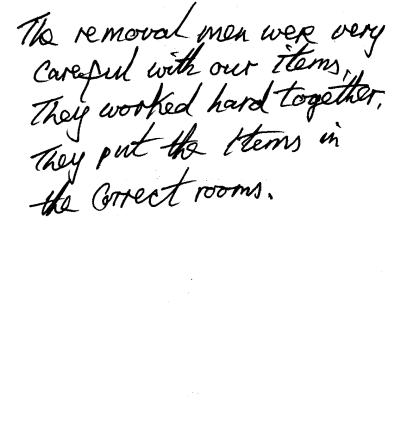 The removal men were very
careful with our items,
They worked hard together.
They put the Items in
the Correct rooms.